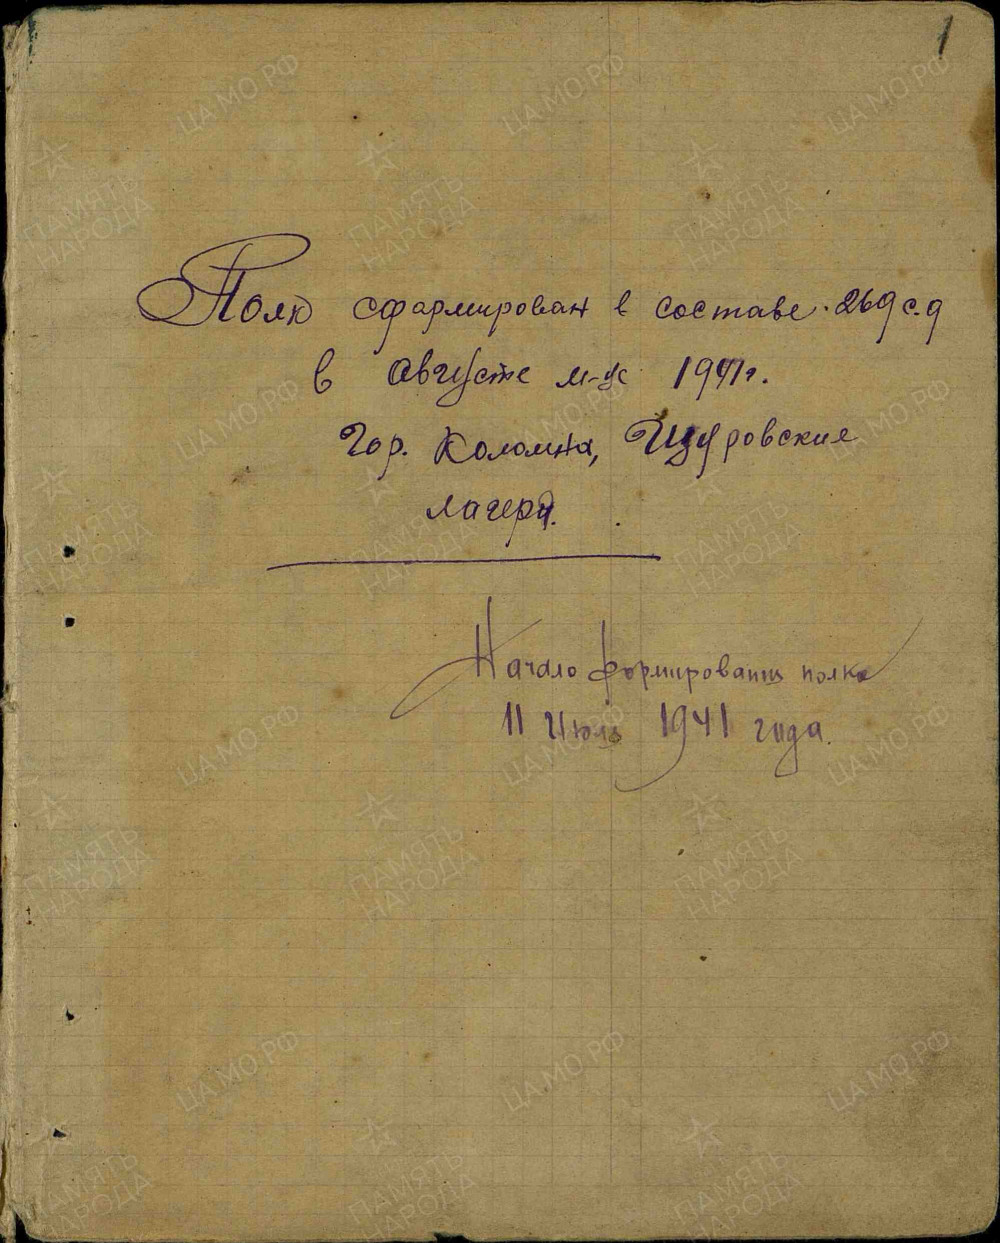 1
Полк сформирован в составе 269 с.д
в августе м-це 1941г.
Гор. Коломна, Щуровские
лагеря.
Начало формирования полка
11 Июля 1941 года.
ЦА МО РФ
ПАМЯТЬ
НАРОДА